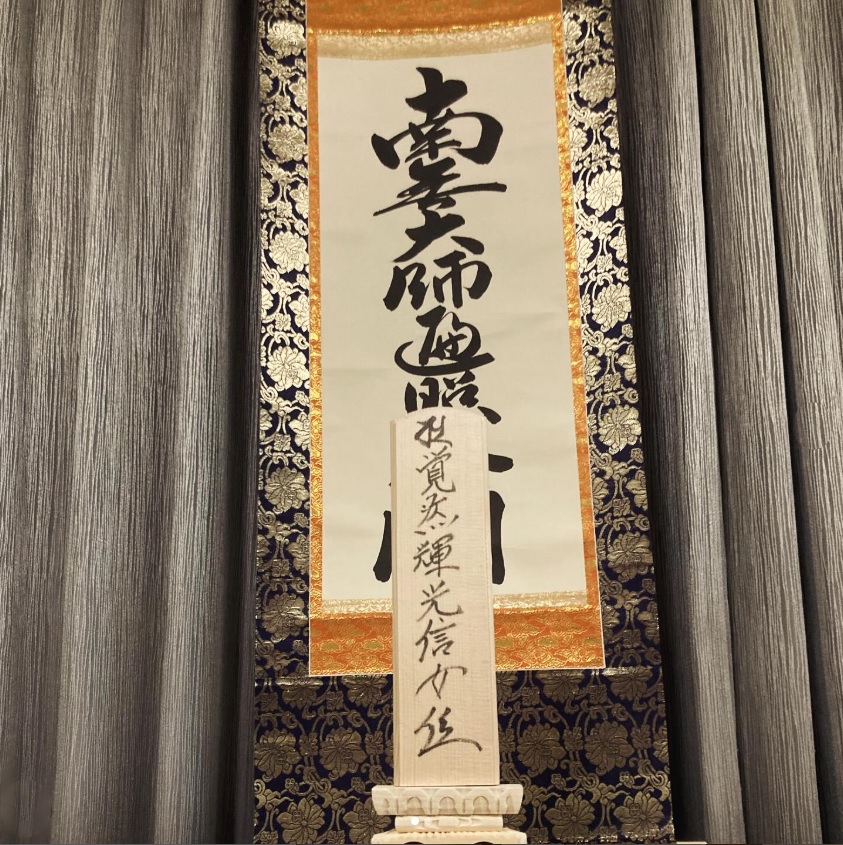 南無大師遍照金剛
覚然輝光信女位